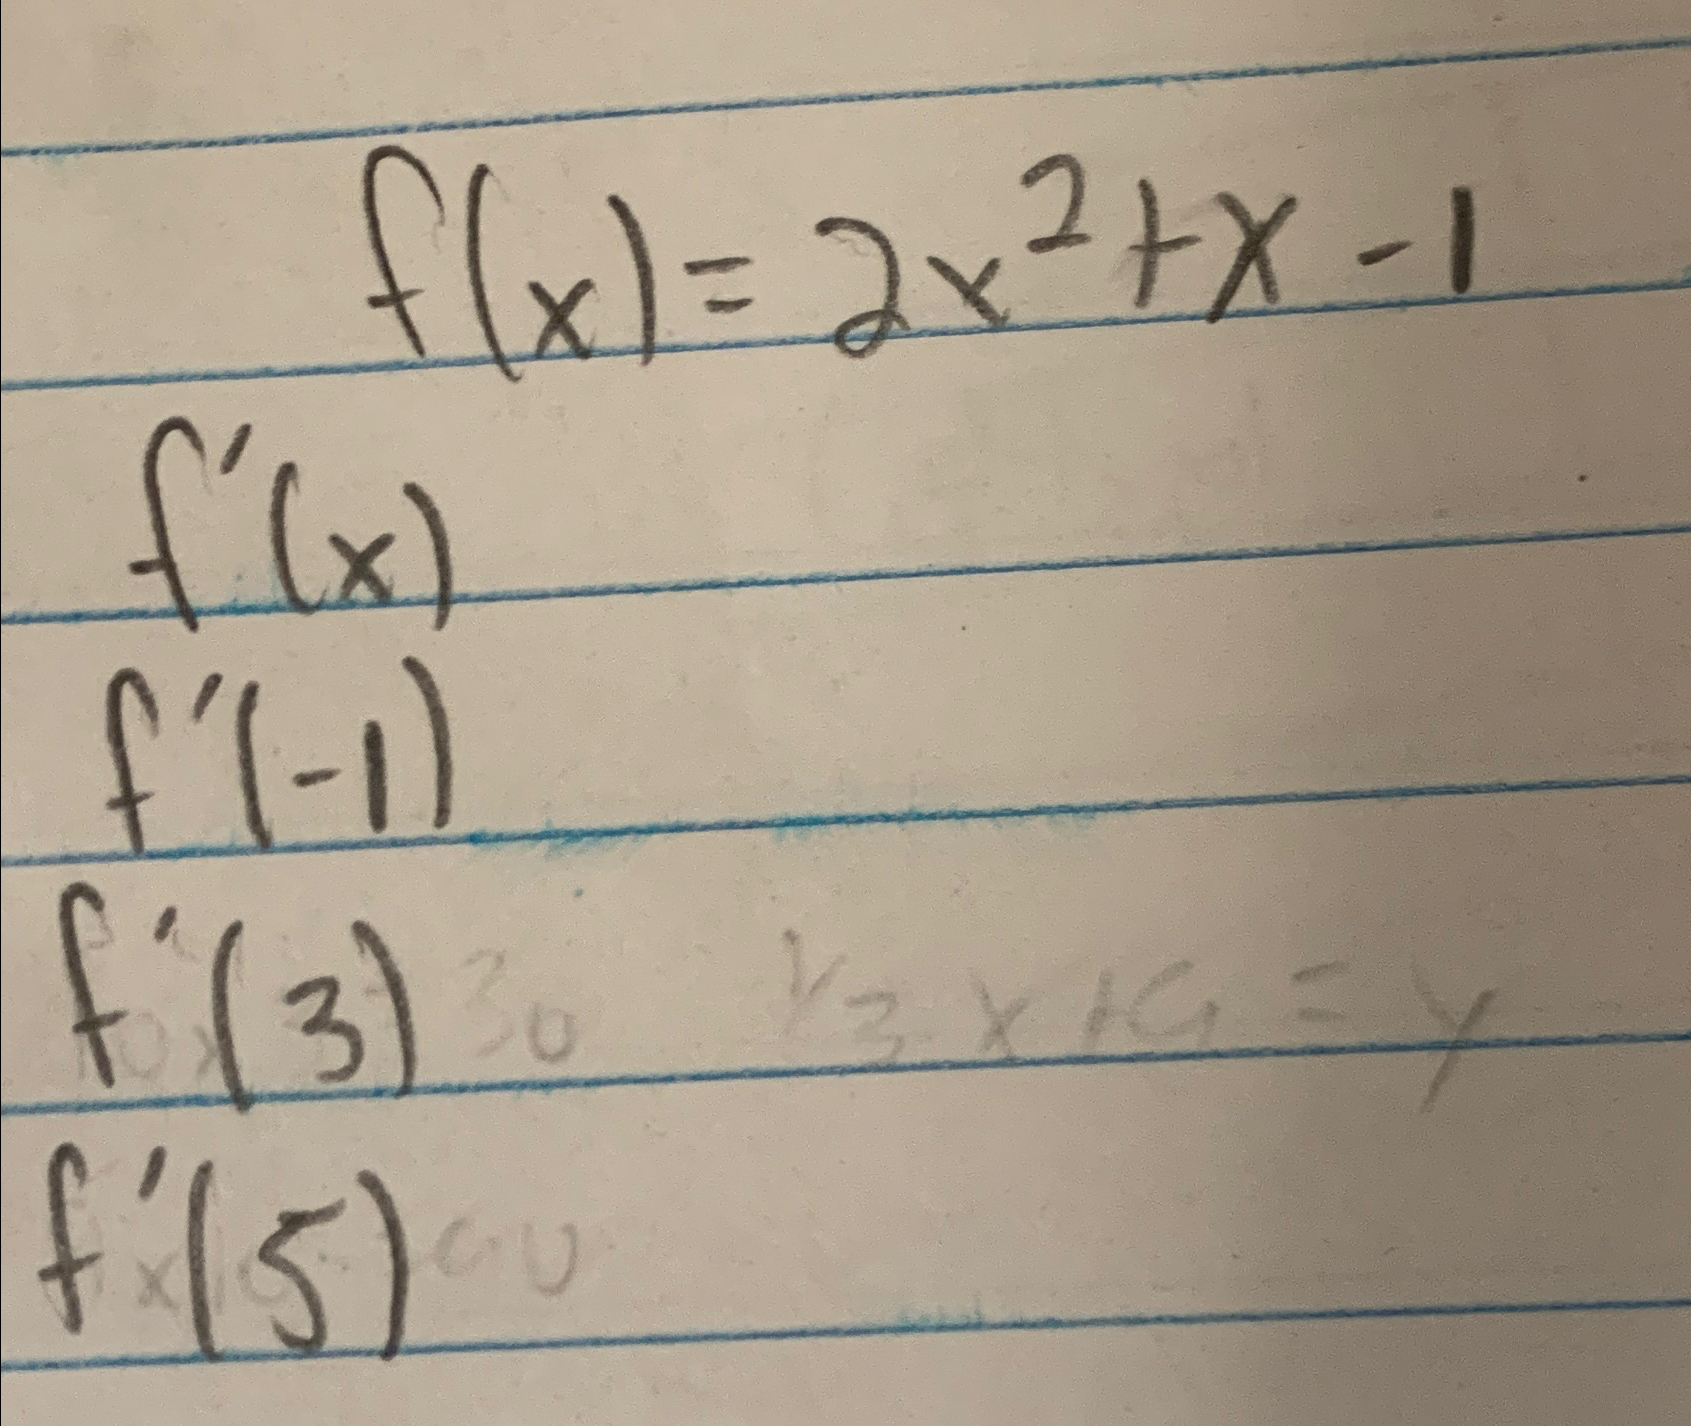 f(x) = 2x² + x - 1
f'(x)
f'(-1)
f'(3)
f'(5)